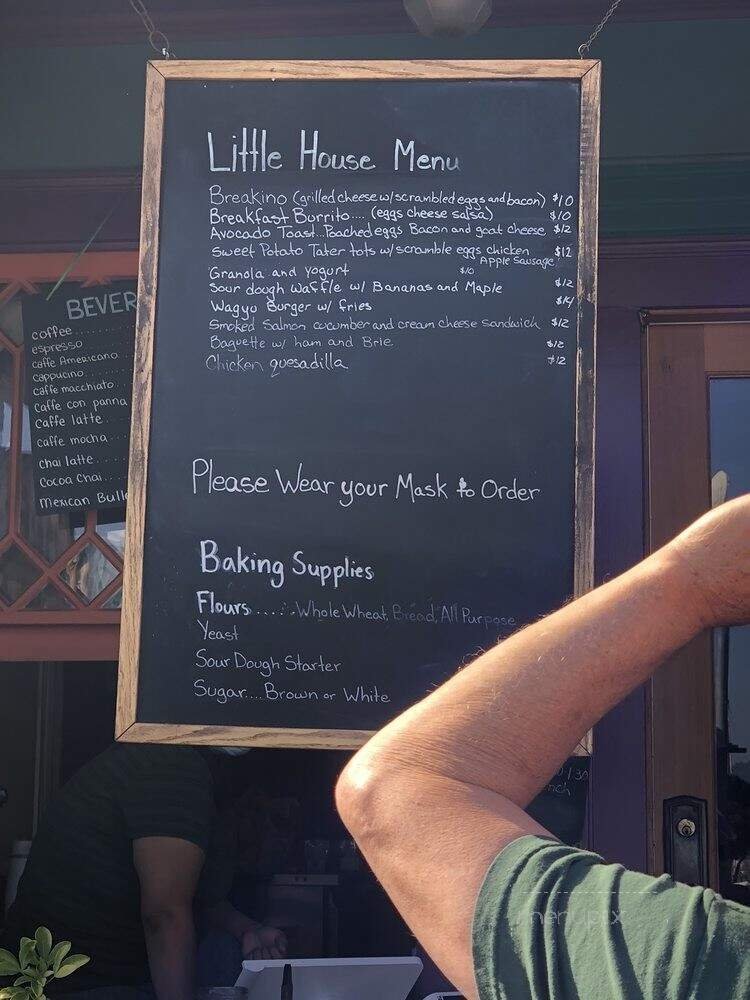 Little House Menu
Breakino (grilled cheese w/ scrambled eggs and bacon) $10
Breakfast Burrito.... (eggs cheese salsa) $10
Avocado Toast...Poached eggs Bacon and goat cheese $12
Sweet Potato Tater tots w/ scramble eggs chicken $12
Apple Sausage
Granola and yogurt $10
Sour dough Waffle w/ Bananas and Maple $12
Wagyu Burger w/ fries $14
Smoked Salmon cucumber and cream cheese sandwich $12
Baguette w/ ham and Brie $12
Chicken quesadilla $12
Please Wear your Mask to Order
Baking Supplies
Flours......Whole Wheat, Bread, All Purpose
Yeast
Sour Dough Starter
Sugar....Brown or White
BEVER
coffee.......
espresso
caffe Americano
cappucino......
caffe macchiato
caffe con panna
caffe latte...
caffe mocha...
chai latte.....
Cocoa Chai....
Mexican Bull
menupix